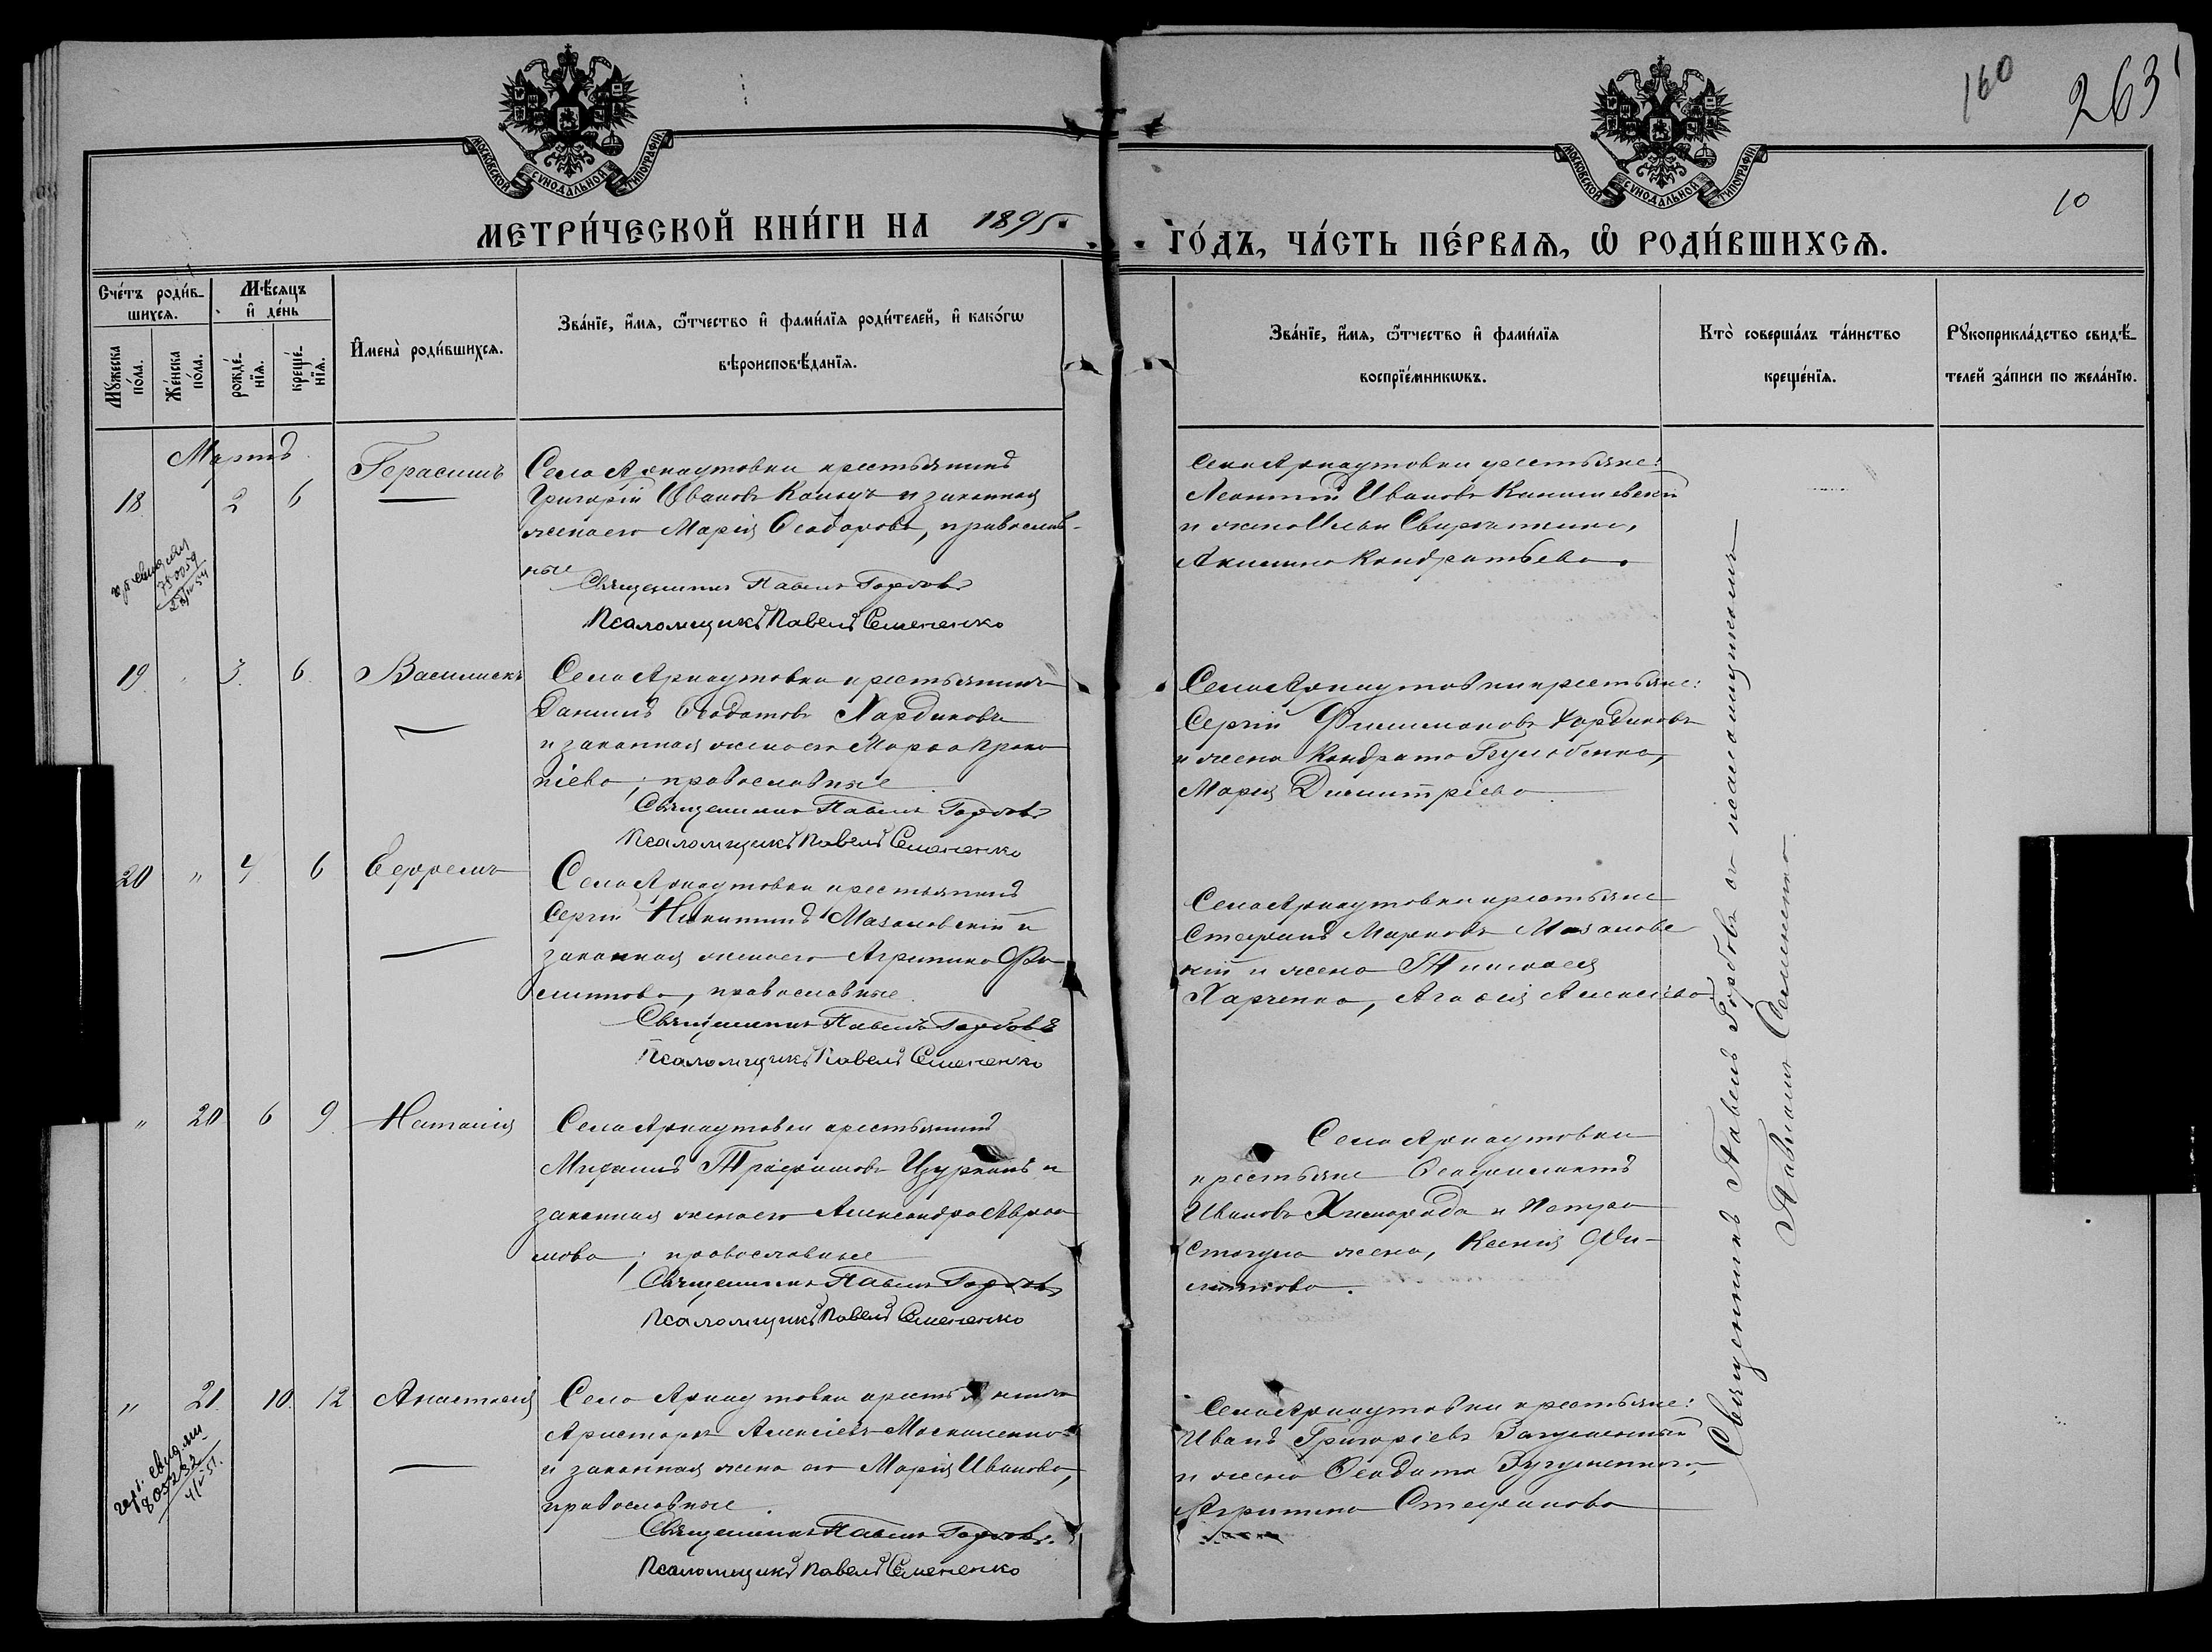 160
263
10
МОСКОВСКОЙ СУНОДАЛЬНОЙ ТИПОГРАФІИ
МОСКОВСКОЙ СУНОДАЛЬНОЙ ТИПОГРАФІИ
МЕТРИ́ЧЕСКОЙ КНИ́ГИ НА 1895
ГО́ДЪ, ЧА́СТЬ ПЕ́РВАѦ, Ѡ РОДИ́ВШИХСѦ.
Сче́тъ роди́в-
шихсѧ.
Мѣ́сѧцъ
и҆ де́нь
Мꙋ́жеска по́ла.
Же́нска по́ла.
рожде́-
нїѧ.
креще́-
нїѧ.
И҆мена̀ роди́вшихсѧ.
Зва́нїе, и҆́мѧ, ѻ҆́тчество и҆ фами́лїѧ роди́телей, и҆ како́гѡ
вѣроисповѣ́данїѧ.
Зва́нїе, и҆́мѧ, ѻ҆́тчество и҆ фами́лїѧ
воспрїе́мникѡвъ.
Кто̀ соверша́лъ та́инство
креще́нїѧ.
Рꙋкоприкла́дство свидѣ́-
телей за́писи по жела́нїю.
Мартъ
18 2 6 Герасимъ
Села Арнаутовки крестьянинъ
Григорій Ивановъ и законная
жена его Марія Ѳеодорова, православ-
ные
Священникъ Павелъ Горбовъ
Псаломщикъ Павелъ Семененко
Села Арнаутовки крестьяне:
Леонтій Ивановъ
и жена Ильи
Акилина Кондратьева.
19 3 6 Василискъ
Села Арнаутовки крестьянинъ
Даніилъ Ѳеодотовъ Хардиковъ
и законная жена его Марѳа Проко
піева, православные
Священникъ Павелъ Горбовъ
Псаломщикъ Павелъ Семененко
Села Арнаутовки крестьяне:
Сергій Филимоновъ Хардиковъ
и жена Кондрата
Марія Димитріева
20 " 4 6 Ефремъ
Села Арнаутовки крестьянинъ
Сергій Никитинъ Мазановскій и
законная жена его Агрипина Фи
липпова, православные.
Священникъ Павелъ Горбовъ
Псаломщикъ Павелъ Семененко
Села Арнаутовки крестьяне
Стефанъ Марковъ Мазановс
кій и жена Тимофея
Харченка, Агафія Алексіева
" 20 6 9 Наталія
Села Арнаутовки крестьянинъ
Михаилъ Трофимовъ Цурканъ и
законная жена его Александра Авраа
мова, православные
Священникъ Павелъ Горбовъ
Псаломщикъ Павелъ Семененко
Села Арнаутовки
крестьяне Ѳеофилактъ
Ивановъ и Петра
жена, Ксенія Фи-
липпова.
" 21 10 12 Анастасія
Села Арнаутовки крестьянинъ
Аристархъ Алексіевъ Москаленко
и законная жена его Марія Иванова,
православные.
Священникъ Павелъ Горбовъ.
Псаломщикъ Павелъ Семененко
Села Арнаутовки крестьяне:
Иванъ Григоріевъ
и жена Ѳеодота
Агрипина Стефанова
Священникъ Павелъ Горбовъ съ псаломщикомъ
Павломъ Семененко